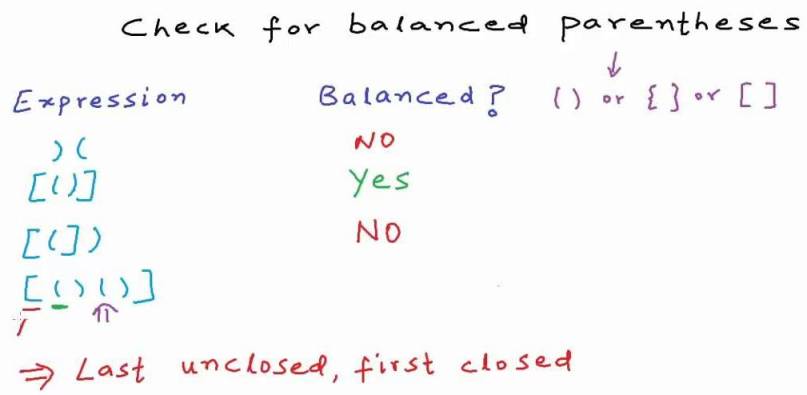 Check for balanced parentheses
Expression Balanced? () or {} or []
)( NO
[()] Yes
[(]) NO
[()()]
⇒ Last unclosed, first closed